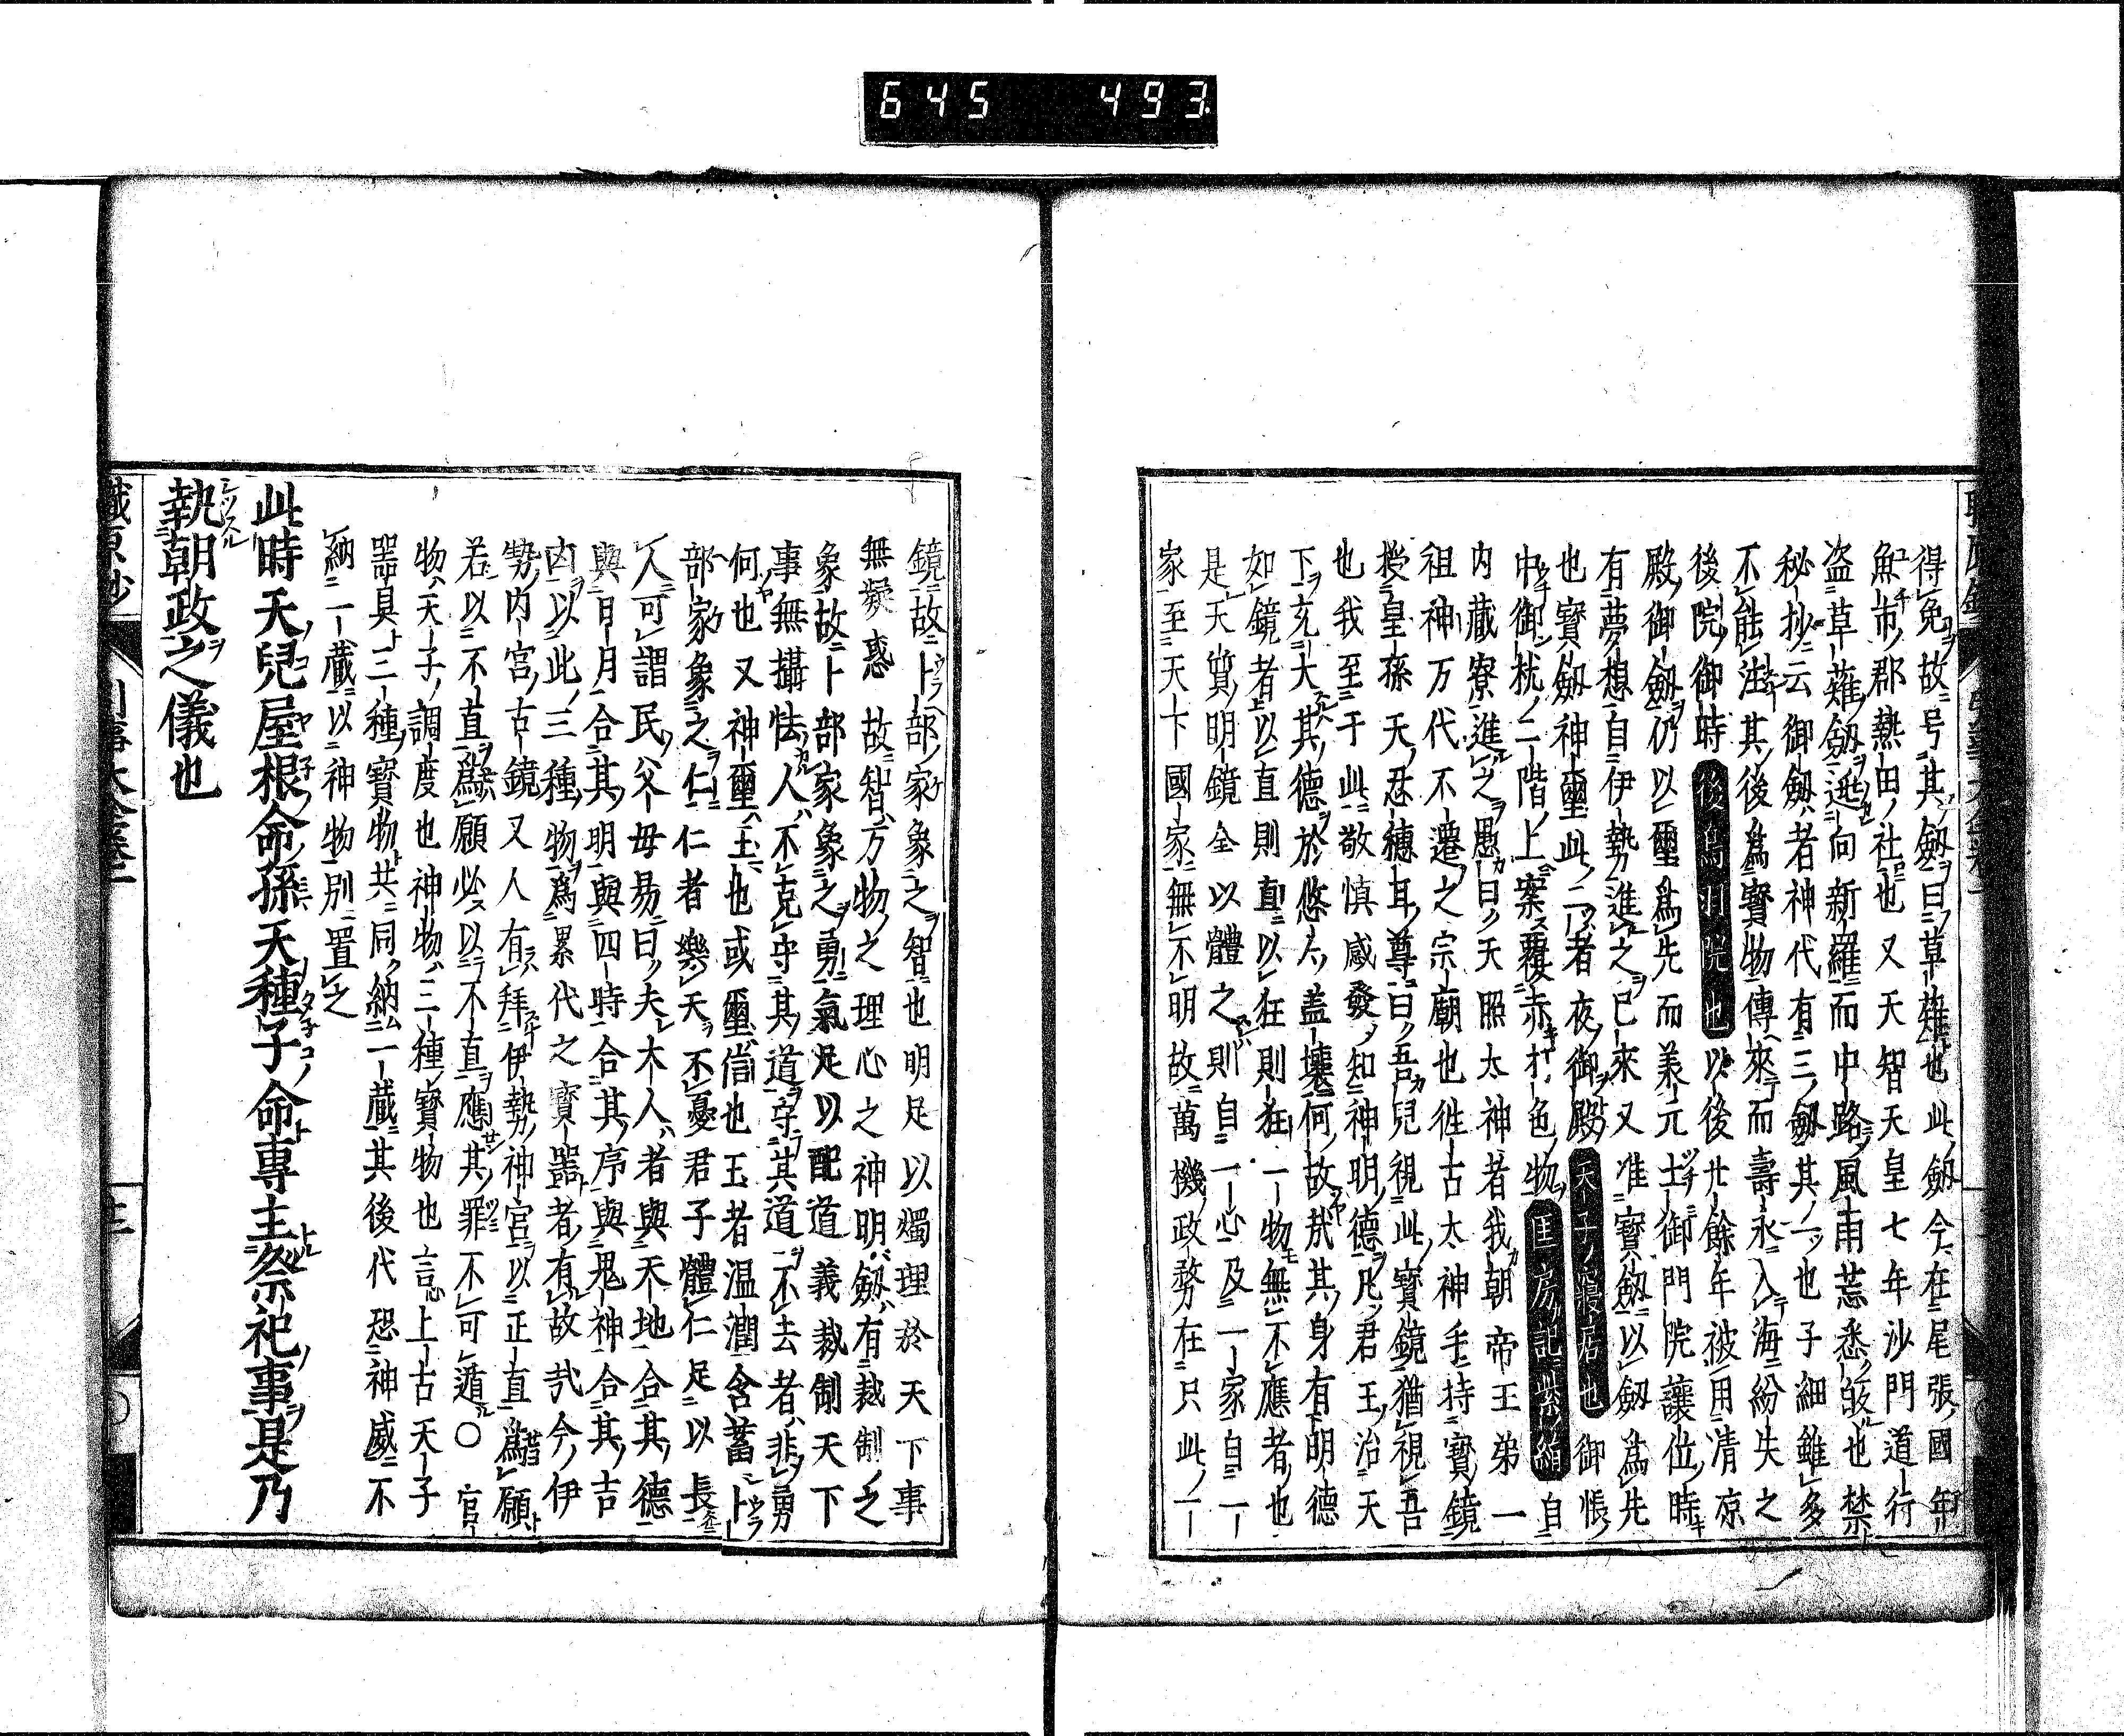 645 493
得免故号其劔曰草薙也此劔今在尾張國年
魚市郡熱田社也又天智天皇七年沙門道行
盗草薙劔逃向新羅而中路風雨荒悉皈也禁
秘抄云御劔者神代有三劔其一也子細雖多
不能注其後爲寳物傳來而壽永入海紛失之
後院御時後鳥羽院也以後廿餘年被用清凉
殿御劔仍以璽爲先而美元土御門院讓位時
有夢想自伊勢進之已來又准寳劔以劔爲先
也寳劔神璽此二者夜御殿天子ノ寢居也御帳
中御枕二階上案覆赤打色物匡房記紫絹自
内蔵寮進之愚曰天照太神者我朝帝王弟一
祖神万代不遷之宗廟也徃古太神手持寳鏡
授皇孫天忍穗耳尊曰吾兒視此寳鏡猶視吾
也我至于此敬慎感發知神明德凡君王治天
下充大其德於悠久盖壤何故哉其身有明德
如鏡者以直則直以狂則狂一物無不應者也
是天質明鏡全以體之則自一心及一家自一
家至天下國家無不明故萬機政務在只此一
鏡故卜部家象之智也明足以燭理於天下事
無疑惑故智方物之理心之神明劔有裁制之
象故卜部家象之勇氣足以配道義裁制天下
事無攝怯人不克守其道守其道不去者非勇
何也又神璽玉也或璽信也玉者温潤含蓄卜
部家象之仁仁者樂天不憂君子體仁足以長
人可謂民父母易曰夫大人者與天地合其德
與日月合其明與四時合其序與鬼神合其吉
凶以此三種物爲累代之寳器者有故哉今伊
勢内宮古鏡又人有拜伊勢神宮以正直爲願
若以不直爲願必以不直應其罪不可遁〇官
物天子調度也神物三種寳物也言上古天子
器具三種寳物共同納一蔵其後代恐神威不
納一蔵以神物別置之
此時天兒屋根命孫天種子命專主祭祀事是乃
執朝政之儀也